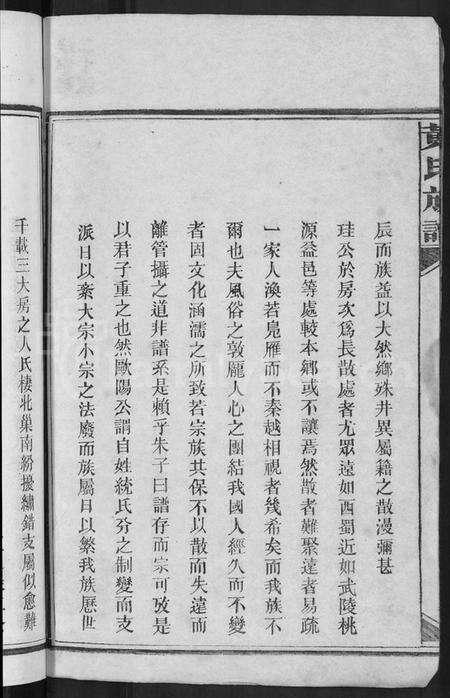 黃氏族譜
辰而族益以大然鄉殊井異屬籍之散漫彌甚
珪公於房次為長散處者尤眾遠如西蜀近如武陵桃
源益邑等處較本鄉或不讓焉然散者難聚遠者易疏
一家人渙若鳧雁而不秦越相視者幾希矣而我族不
爾也夫風俗之敦龐人心之團結我國人經久而不變
者固文化涵濡之所致若宗族共保不以散而失遠而
離管攝之道非譜系是賴乎朱子曰譜存而宗可攷是
以君子重之也然歐陽公謂自姓統氏分之制變而支
派日以紊大宗小宗之法廢而族屬日以繁我族歷世
千載三大房之人氏棲北巢南紛擾繡錯支屬似愈難